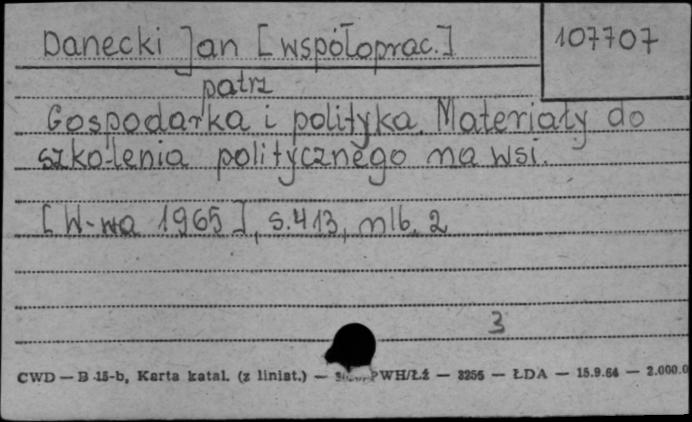 Danecki Jan [współoprac.]
107707
patrz
Gospodarka i polityka. Materiały do
szkolenia politycznego na wsi.
[W-wa 1965], s.413, nlb. 2
3
CWD — B 15-b, Karta katal. (z liniat.) — PWH/Łź — 3255 — ŁDA — 15.9.64 — 2.000.0